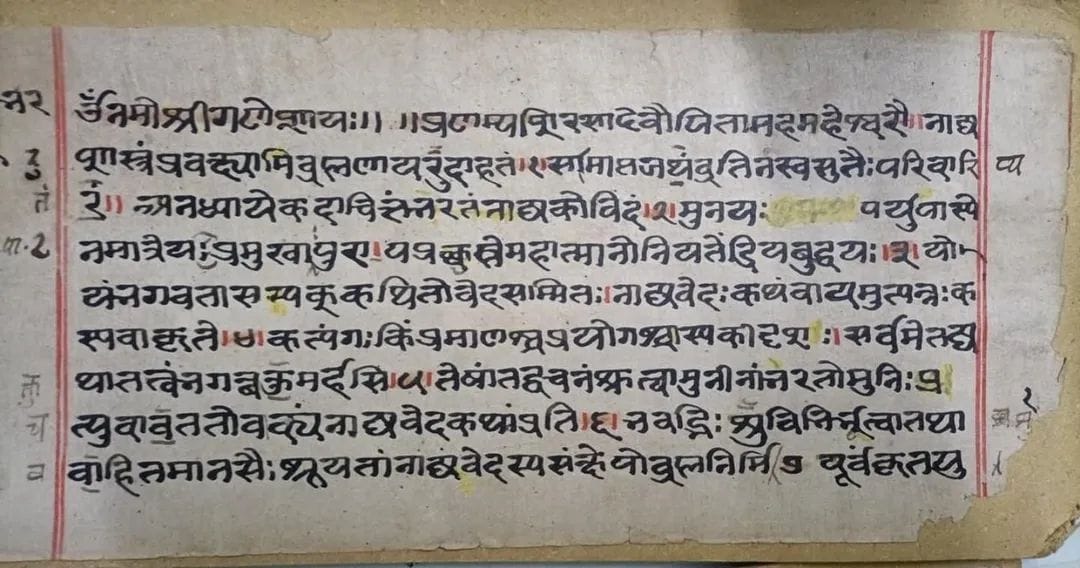 ॐनमोश्रीगणेशायः।। ।।प्रणम्यशिरसादेवौपितामहमहेश्वरौ।।नाट्य
शास्त्रंप्रवक्ष्यामिब्रह्मणायदुदाहृतं।१।समाप्तजप्यंव्रतिनंस्वसुतैःपरिवारि
तं।। अनध्यायेकदाचित्तंभरतंनाट्यकोविदं।२।मुनयः पर्युपास्ये
नमात्रेयःप्रमुखाःपुरा।पप्रछुस्तेमहात्मानोनियतेंद्रियबुद्धयः।३।यो
यंभगवतासम्यक्कथितोवेदसम्मितः।नाट्यवेदःकथंवायमुत्पन्नःक
स्यवाकृते।४।कत्यंगःकिंप्रमाणश्चप्रयोगश्चास्यकीदृशः।सर्वमेतद्य
थातत्वंभगवन्वक्तुमर्हसि।५।तेषांतद्वचनंश्रुत्वामुनीनांभरतोमुनिः।प्र
त्युवाचततोवाक्यंनाट्यवेदकथांप्रति।६।भवद्भिःशुचिभिर्भूत्वातथा
वहितमानसैःश्रूयतांनाट्यवेदस्यसंभवोब्रह्मनिर्मि ७ पूर्वकृतयु